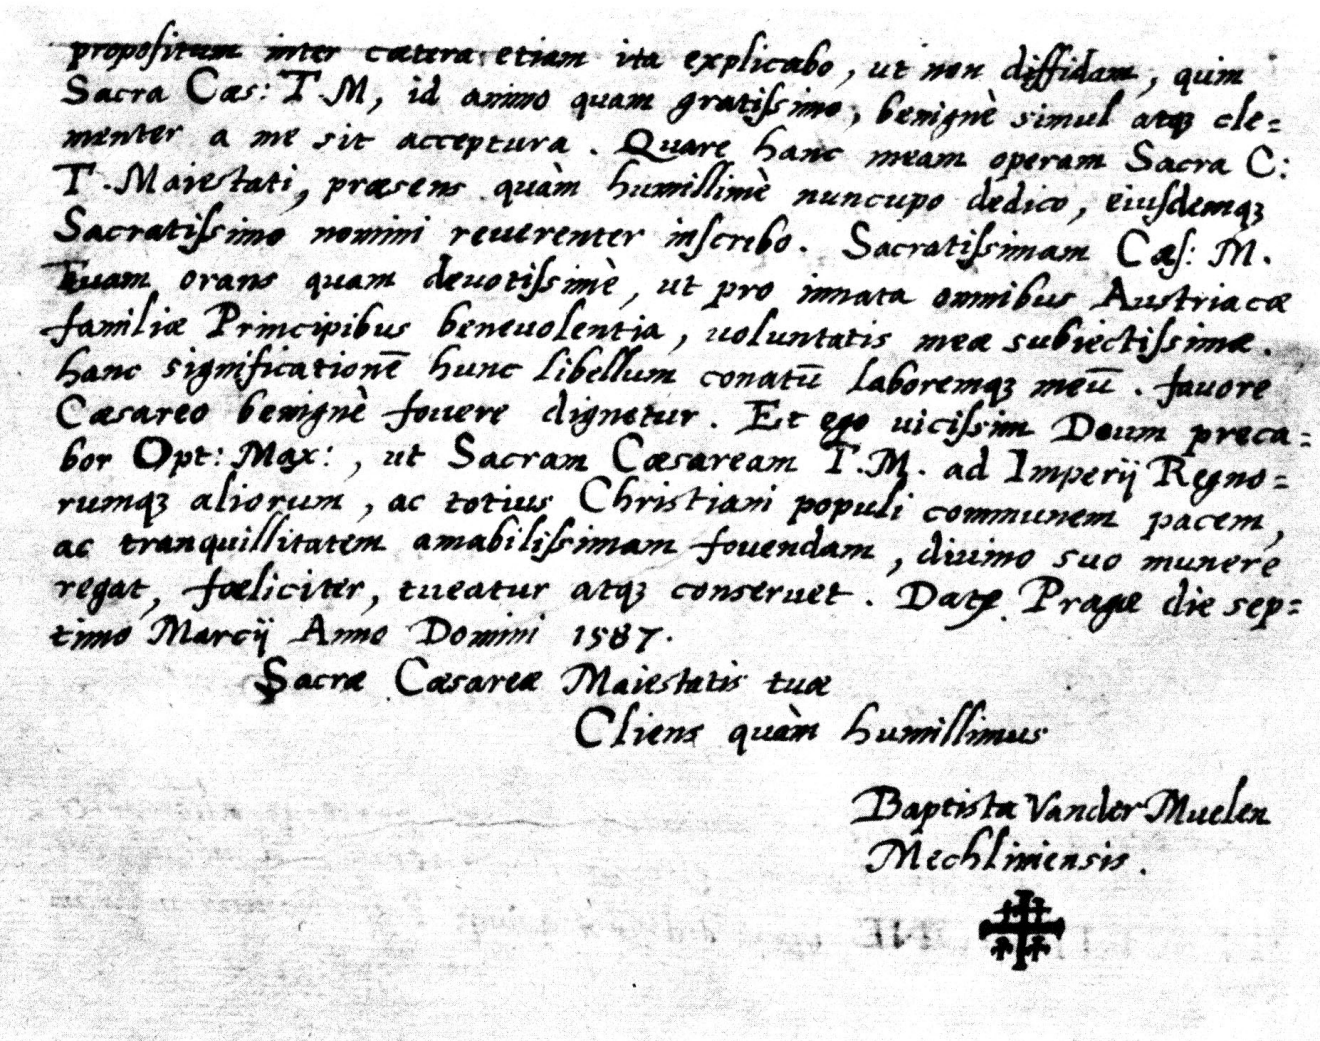 propositum inter cætera etiam ita explicabo, ut non diffidam, quin
Sacra Cæs: T.M, id animo quam gratissimo, benignè simul atqꝫ cle=
menter a me sit acceptura. Quare hanc meam operam Sacra C:
T. Maiestati, præsens quàm humillimè nuncupo dedico, eiusdemqꝫ
Sacratissimo nomini reuerenter inscribo. Sacratissimam Cæs: M.
Tuam orans quam deuotissimè, ut pro innata omnibus Austriacæ
familiæ Principibus beneuolentia, uoluntatis meæ subiectissimæ.
hanc significationē hunc libellum conatū laboremqꝫ meū. fauore
Cæsareo benignè fouere dignetur. Et ego uicissim Deum preca=
bor Opt: Max:, ut Sacram Cæsaream T.M. ad Imperij Regno=
rumqꝫ aliorum, ac totius Christiani populi communem pacem,
ac tranquillitatem amabilissimam fouendam, diuino suo munere
regat, fœliciter, tueatur atqꝫ conseruet. Datę Pragæ die sep=
timo Marcij Anno Domini 1587.
Sacræ Cæsareæ Maiestatis tuæ
Cliens quàm humillimus
Baptista Vander Muelen
Mechliniensis.